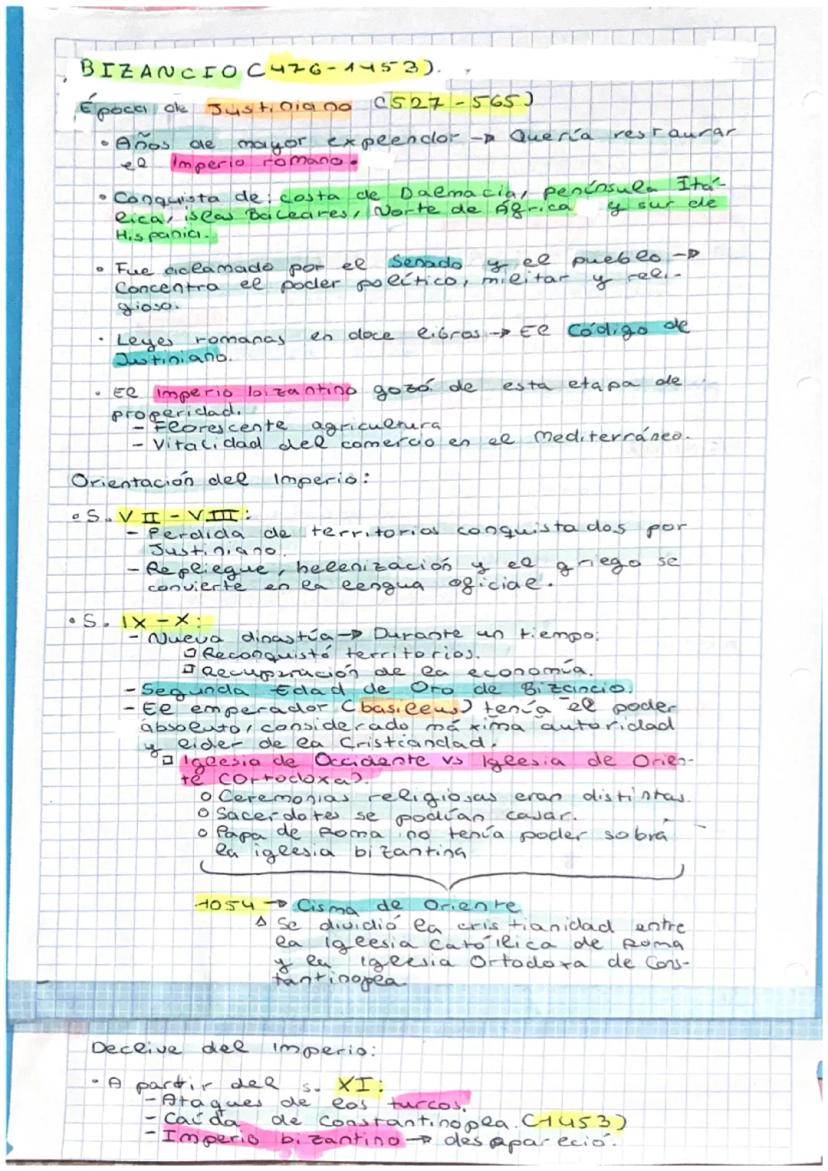 BIZANCIO (476-1453).
Época de Justiniano (527-565)
• Años de mayor expeendor → Quería restaurar
el Imperio romano.
• Conquista de: costa de Dalmacia, península Itá-
lica, islas Baleares, Norte de África y sur de
Hispania.
• Fue aclamado por el Senado y el pueblo →
Concentra el poder político, militar y reli-
gioso.
• Leyes romanas en doce libros → El Código de
Justiniano.
• El Imperio bizantino gozó de esta etapa de
properidad.
- Florescente agricultura
- Vitalidad del comercio en el Mediterráneo.
Orientación del Imperio:
• S. VII - VIII:
- Perdida de territorios conquistados por
Justiniano.
- Repliegue, helenización y el griego se
convierte en la lengua oficial.
• S. IX - X:
- Nueva dinastía → Durante un tiempo:
□ Reconquistó territorios.
□ Recuperación de la economía.
- Segunda Edad de Oro de Bizancio.
- El emperador (basileus) tenía el poder
absoluto, considerado máxima autoridad
y lider de la Cristiandad.
□ Iglesia de Occidente vs Iglesia de Orien-
te (Ortodoxa).
o Ceremonias religiosas eran distintas.
o Sacerdotes se podían casar.
o Papa de Roma no tenía poder sobra
la iglesia bizantina
1054 → Cisma de Oriente
△ Se dividió la cristianidad entre
la Iglesia Católica de Roma
y la Iglesia Ortodoxa de Cons-
tantinopla.
Declive del Imperio:
• A partir del s. XI:
- Ataques de los turcos.
- Caída de Constantinopla. (1453)
- Imperio bizantino → desapareció.